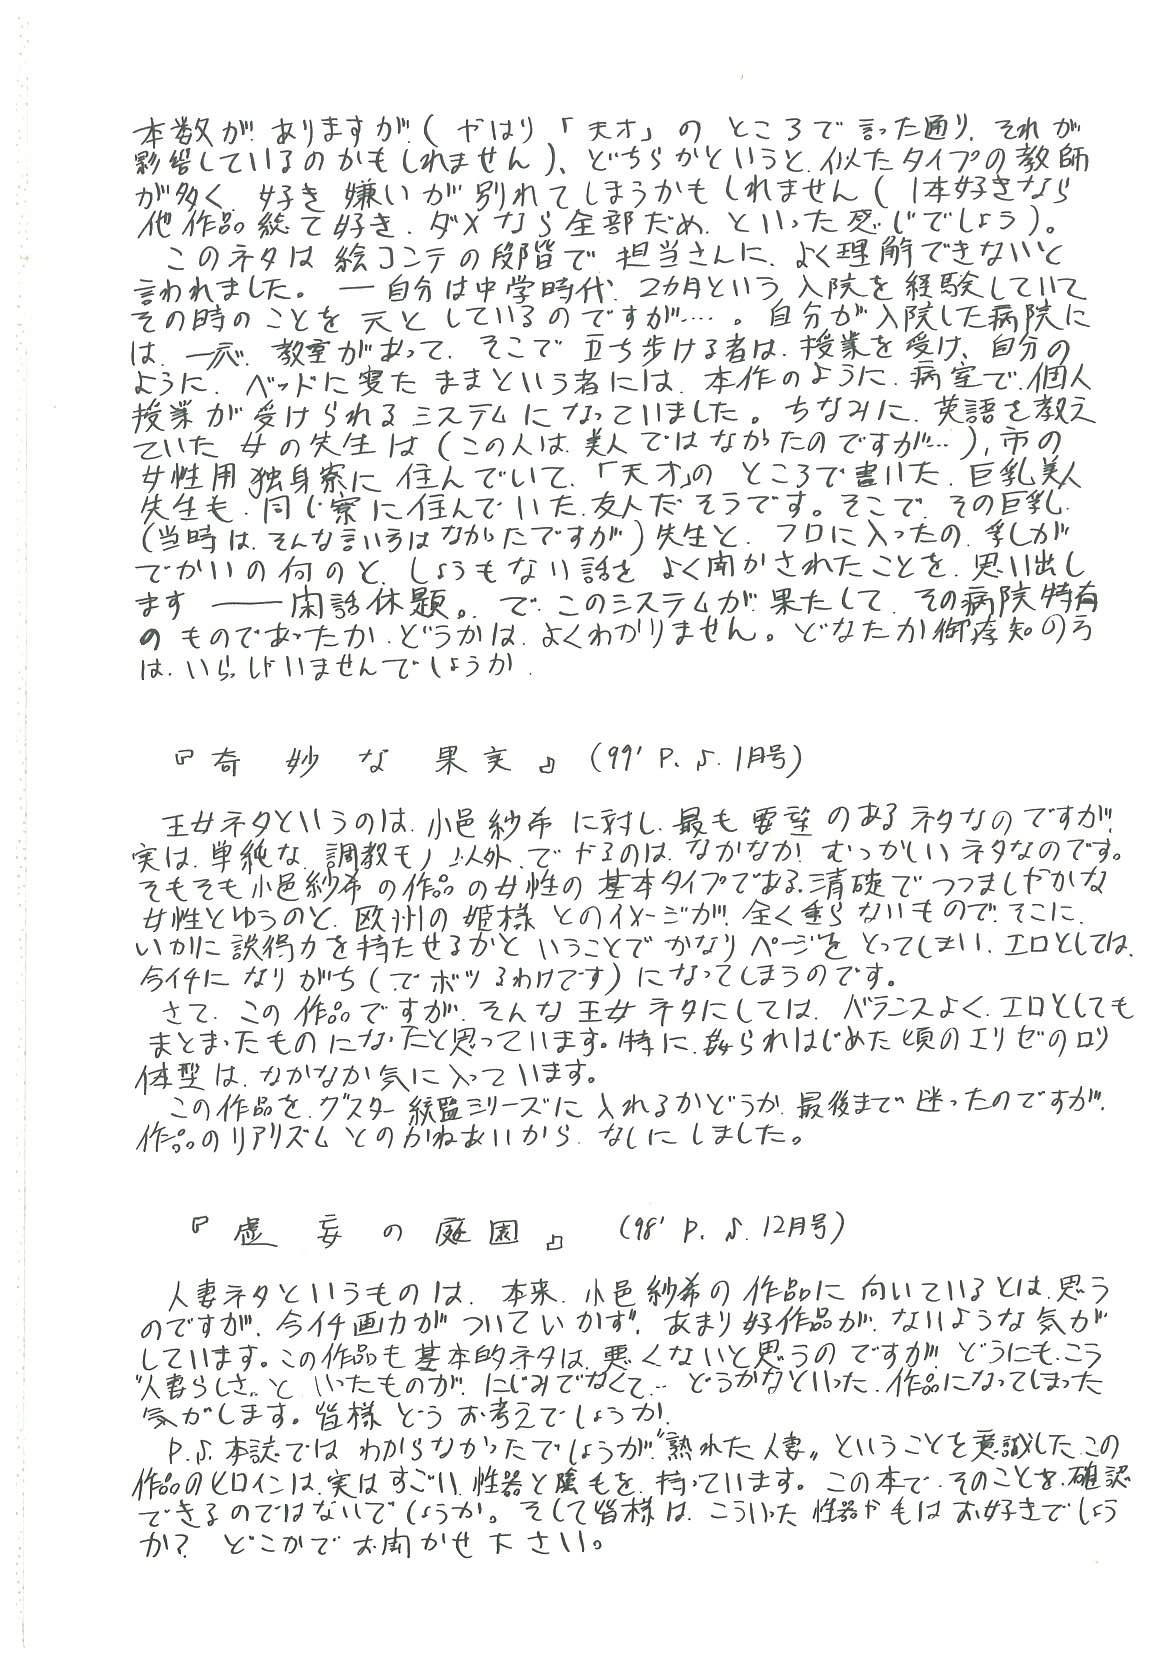 本数が、ありますが(やはり「天才」のところで言った通り、それが
影響しているのかもしれません)、どちらかというと、似たタイプの教師
が多く、好き嫌いが別れてしまうかもしれません(1本好きなら
他作品総て好き、ダメなら全部だめ、といった感じでしょう)。
このネタは絵コンテの段階で、担当さんに、よく理解できないと
言われました。 ―自分は中学時代、2カ月という入院を経験していて
その時のことを元としているのですが…。自分が入院した病院に
は、一応、教室があって、そこで立ち歩ける者は、授業を受け、自分の
ように、ベッドに寝たままという者には、本作のように、病室で、個人
授業が受けられるシステムになっていました。ちなみに、英語を教え
ていた女の先生は(この人は、美人ではなかったのですが…)、市の
女性用独身寮に住んでいて、「天才」のところで書いた、巨乳美人
先生も、同じ寮に住んでいた、友人だそうです。そこで、その巨乳
(当時は、そんな言いろはなかったですが)先生と、フロに入ったの、乳が
でかいの何のと、しょうもない話をよく聞かされたことを、思い出し
ます ――閑話休題。で、このシステムが、果たして、その病院特有
のものであったか、どうかは、よくわかりません。どなたか御存知の方
は、いらっしゃいませんでしょうか。
『奇妙な果実』(99' P.S.1月号)
王女ネタというのは、小邑紗希に対し、最も要望のあるネタなのですが、
実は、単純な、調教モノ以外、でやるのは、なかなか、むつかしいネタなのです。
そもそも小邑紗希の作品の女性の基本タイプである、清礎でつつましやかな
女性とゆうのと、欧州の姫様とのイメージが、全く重らないもので、そこに、
いかに説得力を持たせるかということでかなりページをとってしまい、エロとしては、
今イチになりがち(でボツるわけです)になってしまうのです。
さて、この作品ですが、そんな王女ネタにしては、バランスよく、エロとしても
まとまったものになったと思っています。特に、姦られはじめた頃のエリゼのロリ
体型は、なかなか気に入っています。
この作品を、グスター総監シリーズに入れるかどうか、最後まで迷ったのですが、
作品のリアリズムとのかねあいから、なしにしました。
『虚妄の庭園』(98' P.S.12月号)
人妻ネタというものは、本来、小邑紗希の作品に向いているとは、思う
のですが、今イチ画力がついていかず、あまり好作品が、ないような気が
しています。この作品も基本的ネタは、悪くないと思うのですが、どうにも、こう
"人妻らしさ"といったものが、にじみでなくて…どうかなといった、作品になってしまった
気がします。皆様どうお考えでしょうか。
P.S.本誌ではわからなかったでしょうが、"熟れた人妻"ということを意識した、この
作品のヒロインは、実はすごい、性器と陰毛を、持っています。この本で、そのことを、確認
できるのではないでしょうか。そして皆様は、こういった性器や毛はお好きでしょう
か? どこかでお聞かせ下さい。